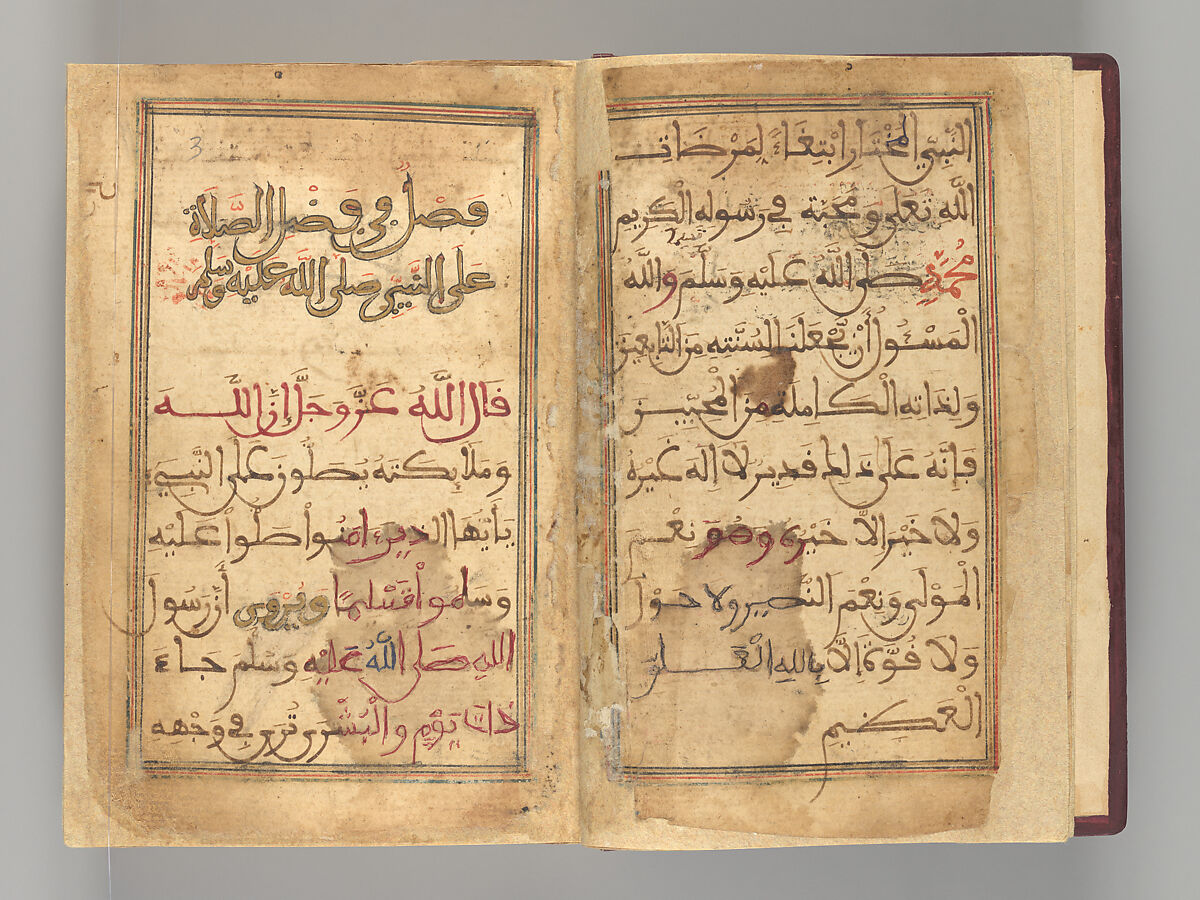 النَّبِيِّ الْمُخْتَارِ ابْتِغَاءً لِمَرْضَاتِ
اللَّهِ تَعَلَى وَمَحَبَّةً فِي رَسُولِهِ الْكَرِيمِ
مُحَمَّدٍ صَلَّى اللَّهُ عَلَيْهِ وَسَلَّمَ وَاللَّهُ
الْمَسْئُولُ أَنْ يَّجْعَلَنَا لِسُنَّتِهِ مِنَ التَّابِعِينَ
وَلِذَاتِهِ الْكَامِلَةِ مِنَ الْمُحِبِّينَ
فَإِنَّهُ عَلَى ذَلِكَ قَدِيرٌ لَا إِلَهَ غَيْرُهُ
وَلَا خَيْرَ إِلَّا خَيْرُهُ وَهُوَ نِعْمَ
الْمَوْلَى وَنِعْمَ النَّصِيرُ وَلَا حَوْلَ
وَلَا قُوَّةَ إِلَّا بِاللَّهِ الْعَلِيِّ
الْعَظِيمِ
3
فَصْلٌ فِي فَضْلِ الصَّلَاةِ
عَلَى النَّبِيِّ صَلَّى اللَّهُ عَلَيْهِ وَسَلَّمَ
قَالَ اللَّهُ عَزَّ وَجَلَّ إِنَّ اللَّهَ
وَمَلَائِكَتَهُ يُصَلُّونَ عَلَى النَّبِيِّ
يَأَيُّهَا الَّذِينَ ءَامَنُواْ صَلُّواْ عَلَيْهِ
وَسَلِّمُواْ تَسْلِيمًا وَيُرْوَى أَنَّ رَسُولَ
اللَّهِ صَلَّى اللَّهُ عَلَيْهِ وَسَلَّمَ جَاءَ
ذَاتَ يَوْمٍ وَالْبُشْرَى تُرَى فِي وَجْهِهِ